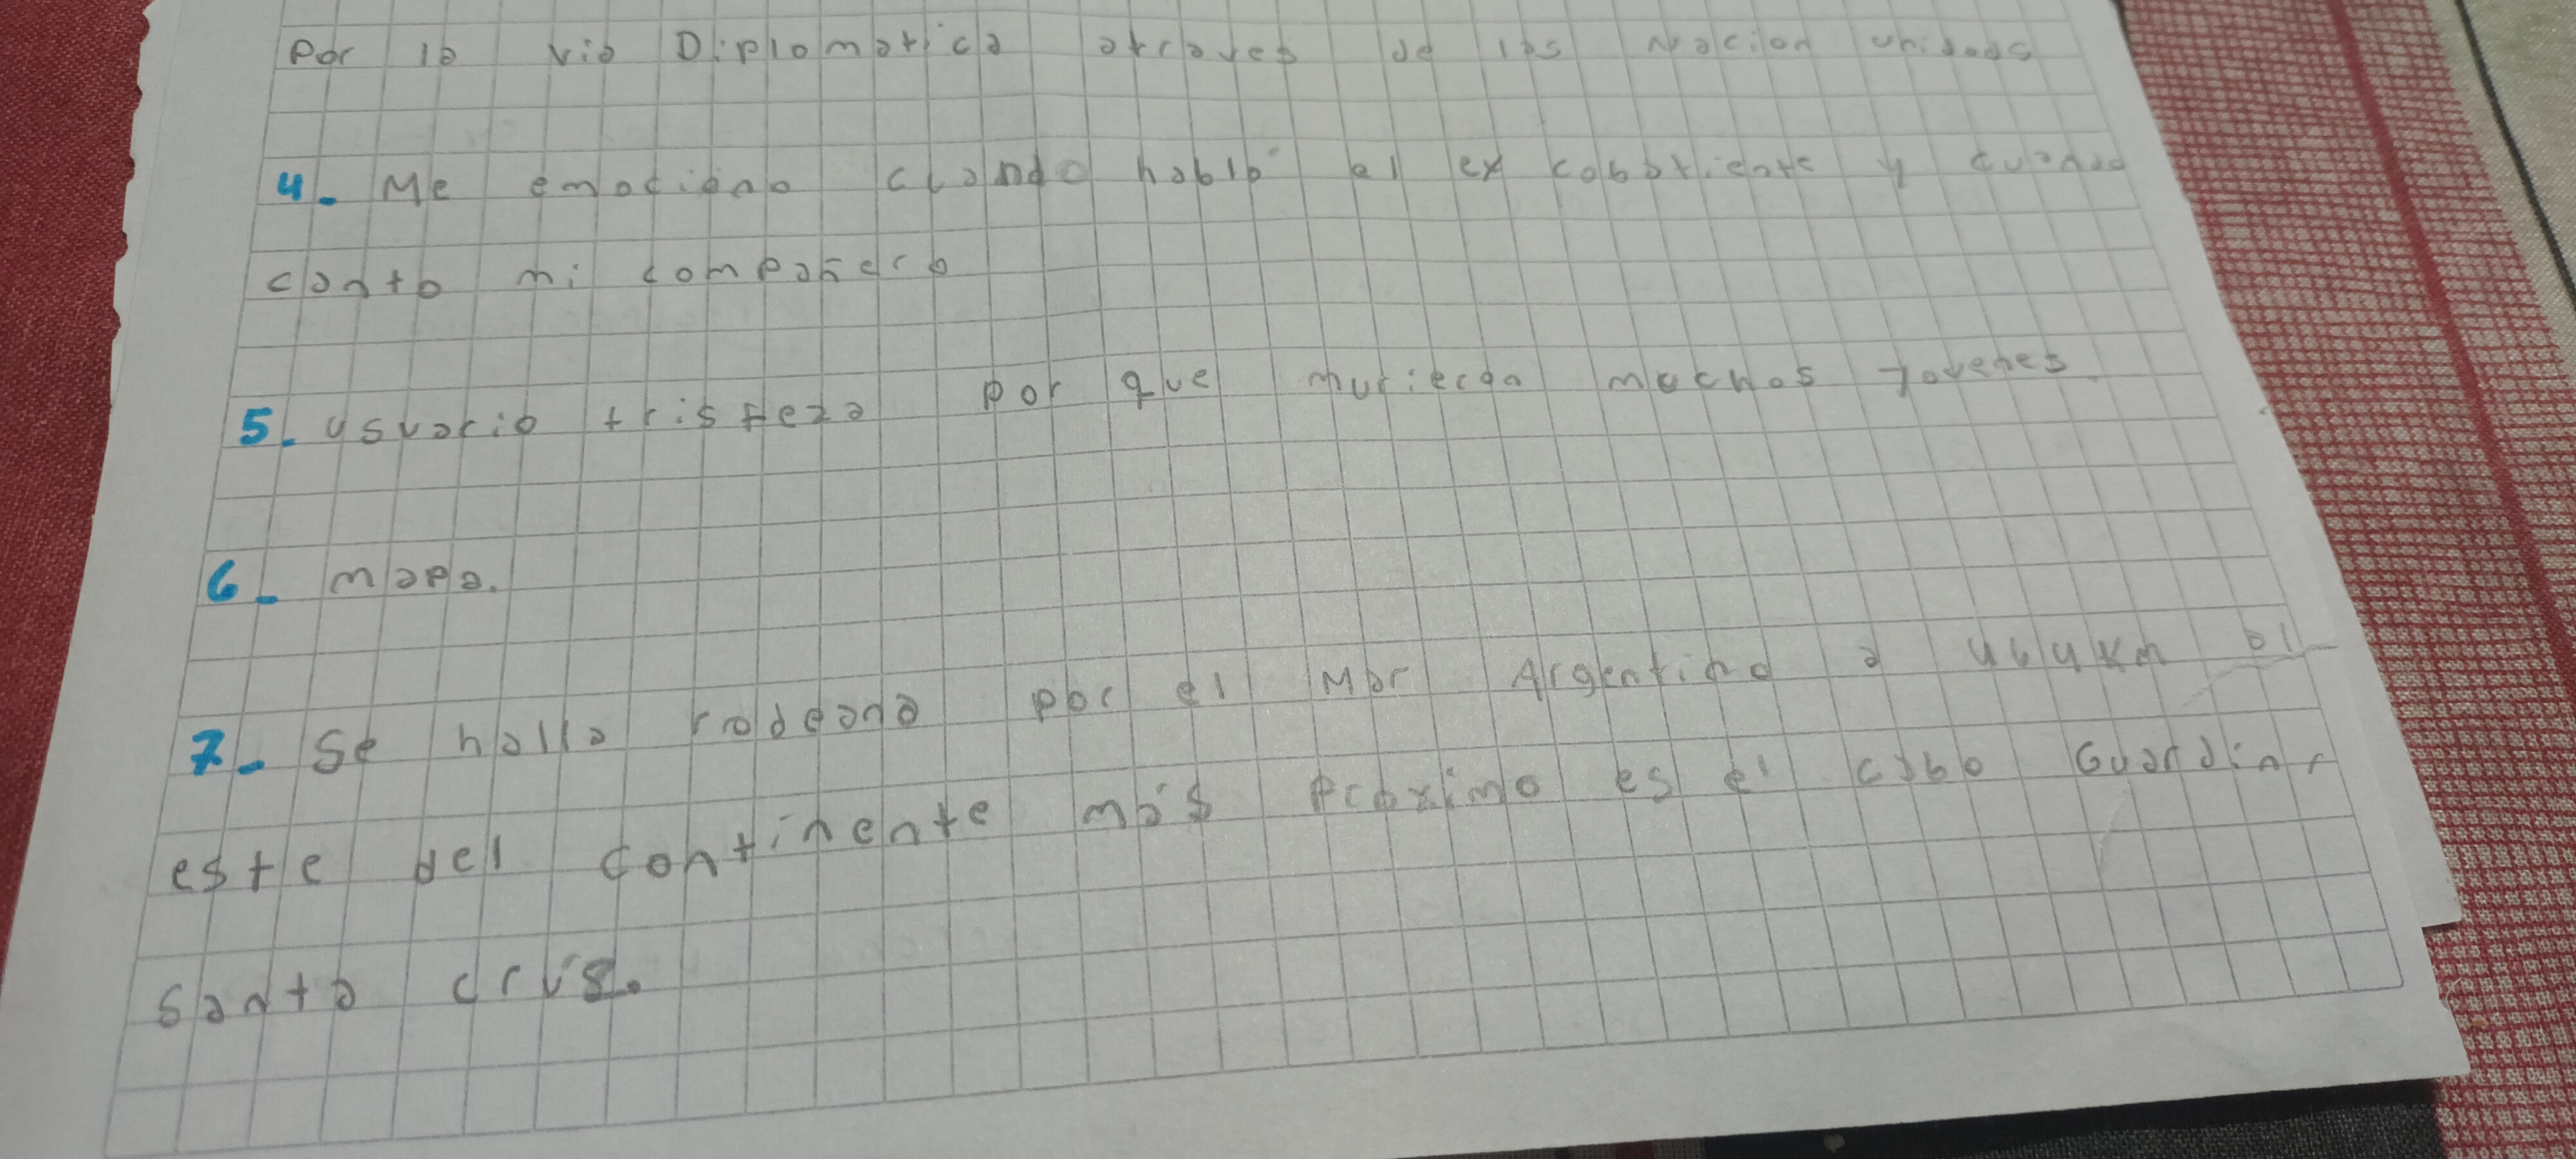 Por la via Diplomatica atraves de las Nacion unidads
4. Me emociono cuando hablo el ex cobatiente y cuando
canto mi compañero
5. usuario tristeza por que murieron muchos jovenes
6_ mapa.
7_ Se halla rodeano por el Mar Argentino a 464km al
este del continente más Proximo es el cabo Guardinr
Santa crus.